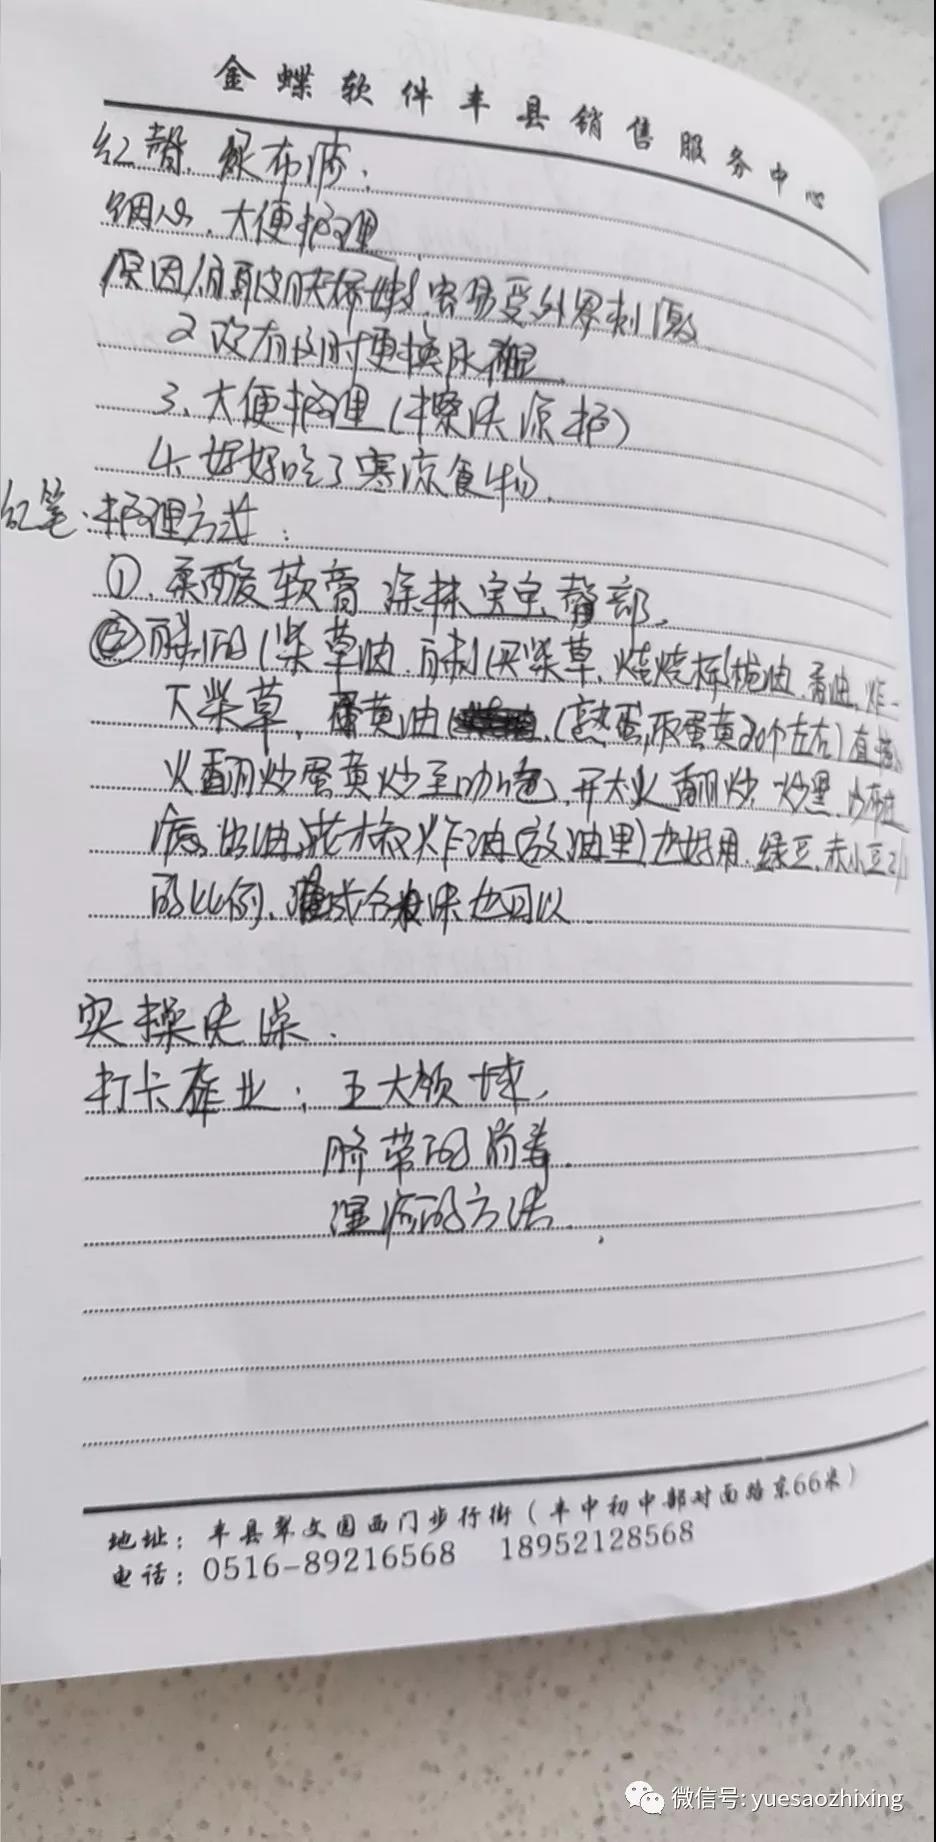 金蝶软件丰县销售服务中心
红臀、尿布疹：
细心、大便护理
原因1、臀部皮肤娇嫩，容易受外界刺激
2 没有及时更换尿裤
3、大便护理（擦洗 护）
4、妈妈吃了寒凉食物、
红笔：护理方式：
①、柔酸软膏 涂抹宝宝臀部、
②、的（柴草油、买柴草、油、香油、炸一
下柴草、蛋黄油（熟蛋，取蛋黄20个左右）直接
火翻炒蛋黄炒至、开大火翻炒、炒黑、
出油，花椒炸油（放油里）也好用、绿豆、赤小豆2/1
的比例、也可以
实操
打卡作业：五大领域、
脐带的消毒、
湿疹的方法、
地址：丰县翠文园西门步行街（丰中初中部对面路东66米）
电话：0516-89216568 18952128568
微信号: yuesaozhixing